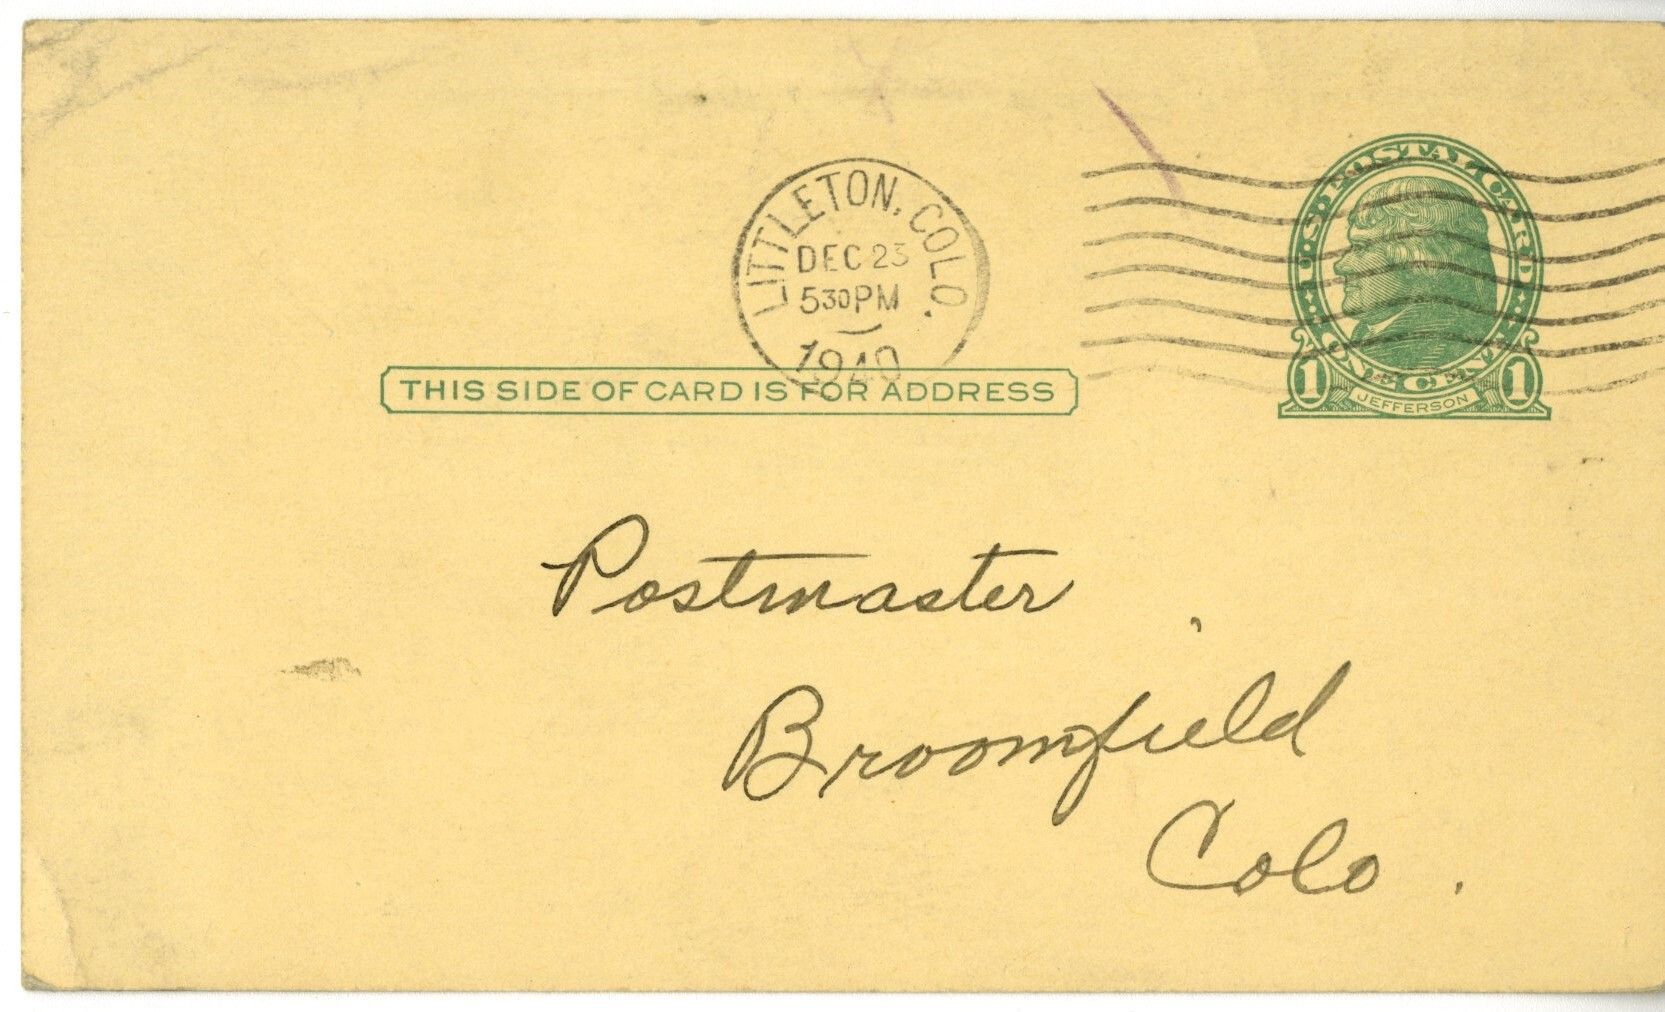 LITTLETON, COLO.
DEC 23
530PM
1940
U.S. POSTAL CARD
ONE CENT
1 JEFFERSON 1
THIS SIDE OF CARD IS FOR ADDRESS
Postmaster
Broomfield
Colo.